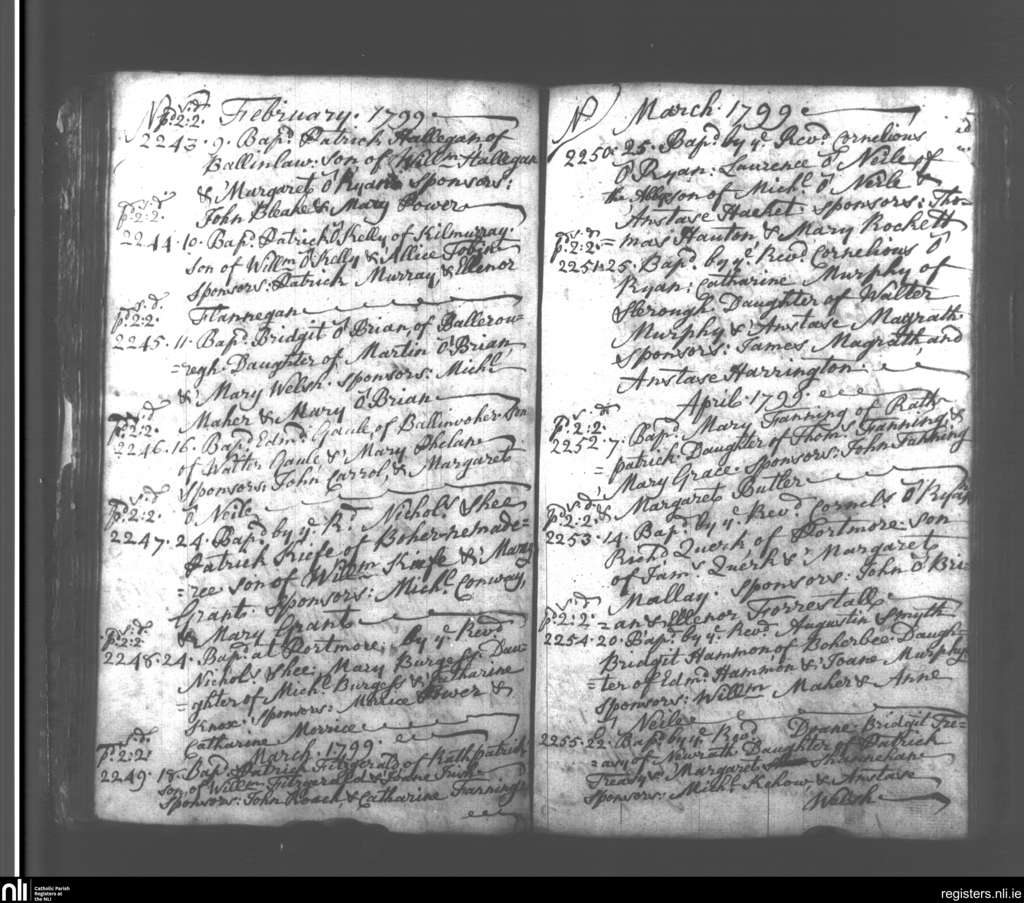 No February. 1799.
s:d.
pd:2:2.
2243. 9. Bapd. Patrick Hallegan of
Ballinlaw: son of Willm. Hallegan
& Margaret O'Ryan. Sponsors:
John Bleake & Mary Power
s:d.
pd:2:2.
2244. 10. Bapd. Patrick O'Kelly of Kilmurray.
son of Willm. O'Kelly & Allice Tobin
sponsors: Patrick Murray, & Ellenor
Flannegan
s:d.
pd:2:2.
2245. 11. Bapd. Bridgit O'Brian of Ballerow=
=regh. Daughter of Martin O'Brian
& Mary Welsh. sponsors: Michl.
Maher & Mary O'Brian
s:d
pd:2:2.
2246. 16. Bapd. Edmd. Gaule, of Ballinvoher. son
of Walter Gaule & Mary Phelan
sponsors: John Carrol, & Margaret
O'Neile
s:d.
pd:2:2.
2247. 24. Bapd. by ye. Rd. Nichols. Shee
Patrick Kiefe of Boher-nemade=
=ree son of Willm Kiefe & Mary
Grant. Sponsors: Michl. Conway,
& Mary Grant
s:d.
pd:2:2
2248. 24. Bapd. at Portmore, by ye. Revd.
Nichols. Shee: Mary Burgess Dau=
=ghter of Michl. Burgess & Catharine
Knox. sponsors: Morice Power &
Catharine Morrice
March. 1799.
s:d.
pd:2:2
2249. 18. Bapd. Patrig Fitzgerald of Rathpatrick
son of Willm. Fitzgerald &
Sponsors: John Roach & Catharine Fanning
No March. 1799.
2250. 25. Bapd. by ye. Revd. Cornelious
O'Ryan: Laurence O'Neile of
the Abby son of Michl. O'Neile &
Anstase Hacket. sponsors: Tho=
=mas Hauton, & Mary Rockett
s:d
pd:2:2.
2251. 25. Bapd. by ye. Revd. Cornelious O'
Ryan: Catharine Murphy of
Slerough: Daughter of Walter
Murphy & Anstase Magrath
Sponsors: James Magrath, and
Anstase Harrington.
April. 1799.
s:d.
pd:2:2.
2252. 7. Bapd. Mary Fanning of Rath=
=patrick. Daughter of Thoms. Fanning, &
Mary Grace. Sponsors: John Fanning
& Margaret Butler
s:d.
pd:2:2.
2253. 14. Bapd. by ye. Revd. Cornels. O'Ryan
Richd. Querk of Portmore. son
of Jams. Querk & Margaret
Mallay. Sponsors: John O'Bri=
=an & Ellenor Forrestall
s:d.
pd:2:2.
2254. 20. Bapd. by ye. Revd. Augustin Smyth
Bridgit Hammon of Boherbee. Daugh=
=ter of Edmd. Hammon & Joane Murphy
sponsors: Willm Maher & Anne
Neile
2255. 22. Bapd. by ye. Revd. Doane. Bridgit Tre=
=asy of Newrath. Daughter of Patrick
Treasy & Margaret Shanneehan
sponsors: Michl. Kehow, & Anstase
Welsh
nli
Catholic Parish
Registers at
the NLI
registers.nli.ie